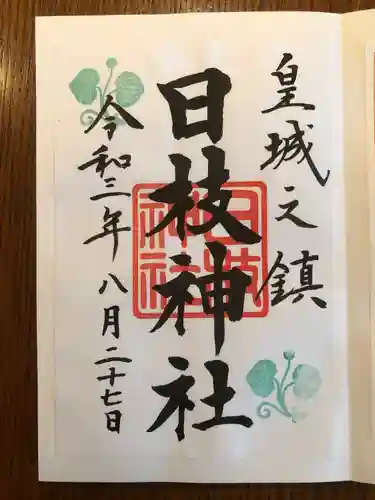 皇城之鎮
日枝神社
令和三年八月二十七日
日枝神社